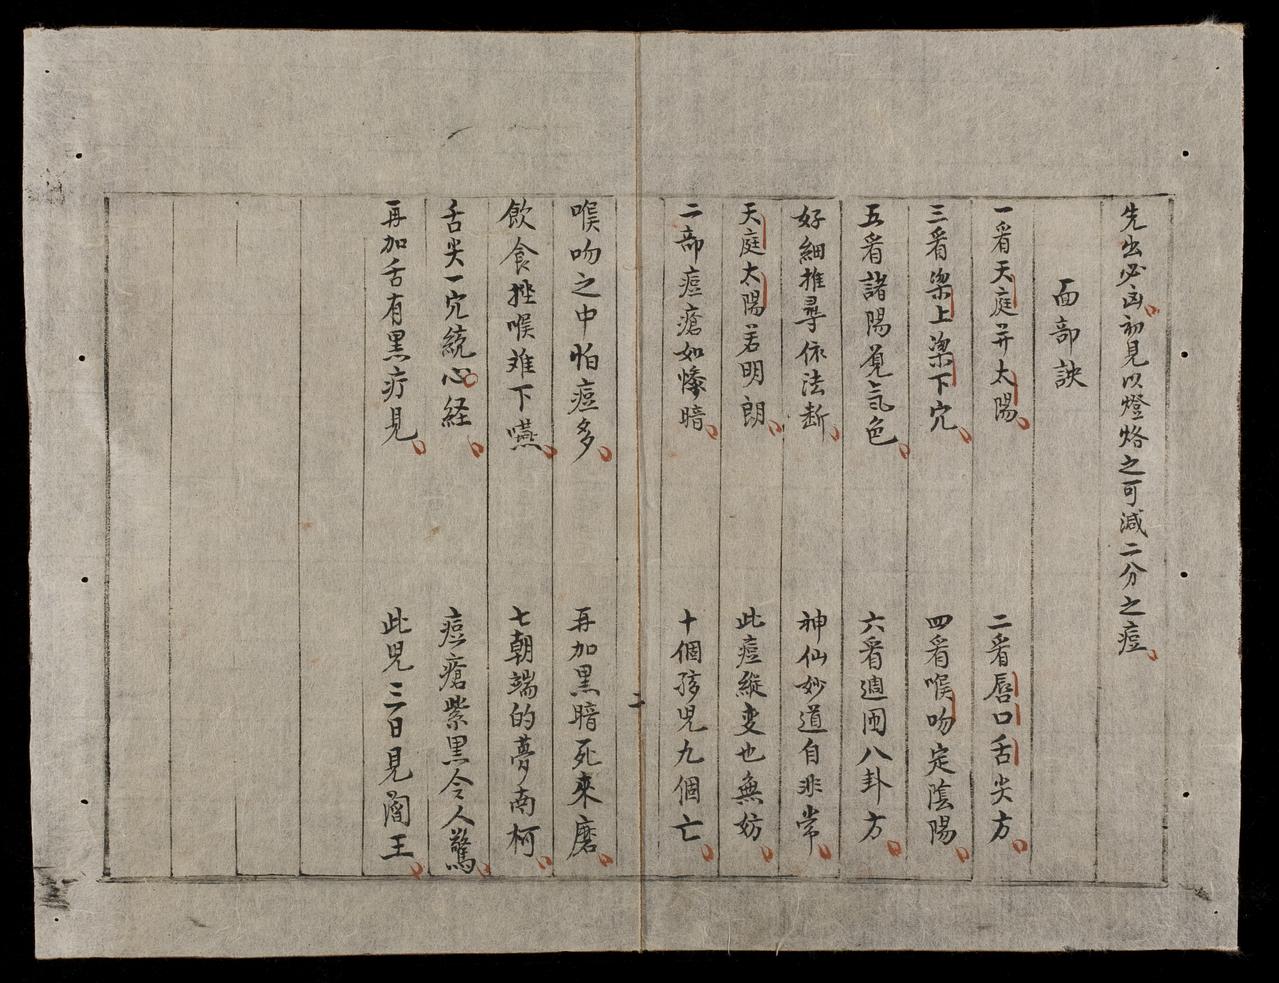 先出必凶初見以燈烙之可減二分之痘
面部訣
一看天庭并太陽 二看唇口舌尖方
三看梁上梁下穴 四看喉吻定陰陽
五看諸陽覓氣色 六看週围八卦方
好細推尋依法断 神仙妙道自非常
天庭太陽若明朗 此痘縱变也無妨
二部痘瘡如慘暗 十個孩児九個亡
二
喉吻之中怕痘多 再加黒暗死來磨
飲食挫喉难下嚥 七朝端的夢南柯
舌尖一穴統心経 痘瘡紫黒令人驚
再加舌有黒疔見 此児三日見閻王